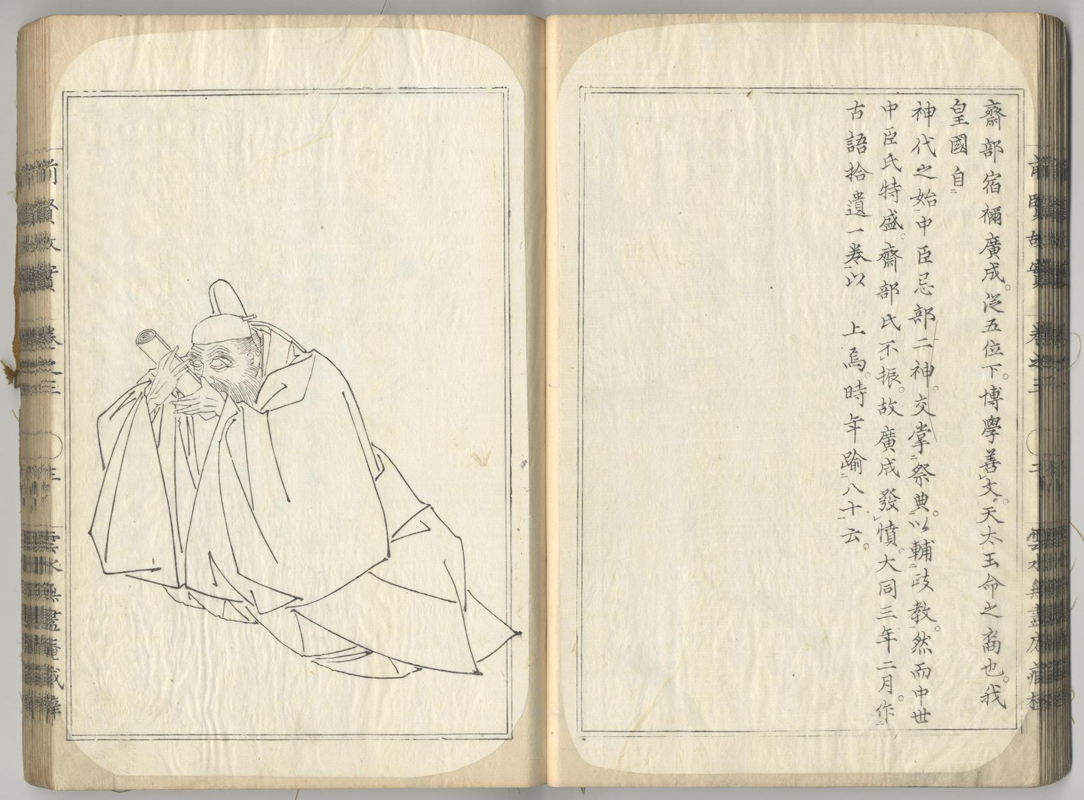 齋部宿禰廣成。從五位下。博學善文。天太玉命之裔也。我
皇國自
神代之始中臣忌部二神。交掌祭典。以輔政教。然而中世
中臣氏特盛。齋部氏不振。故廣成發憤。大同三年二月。作
古語拾遺一卷以 上焉。時年踰八十云。
前賢故實 卷之三
前賢故實 卷之三